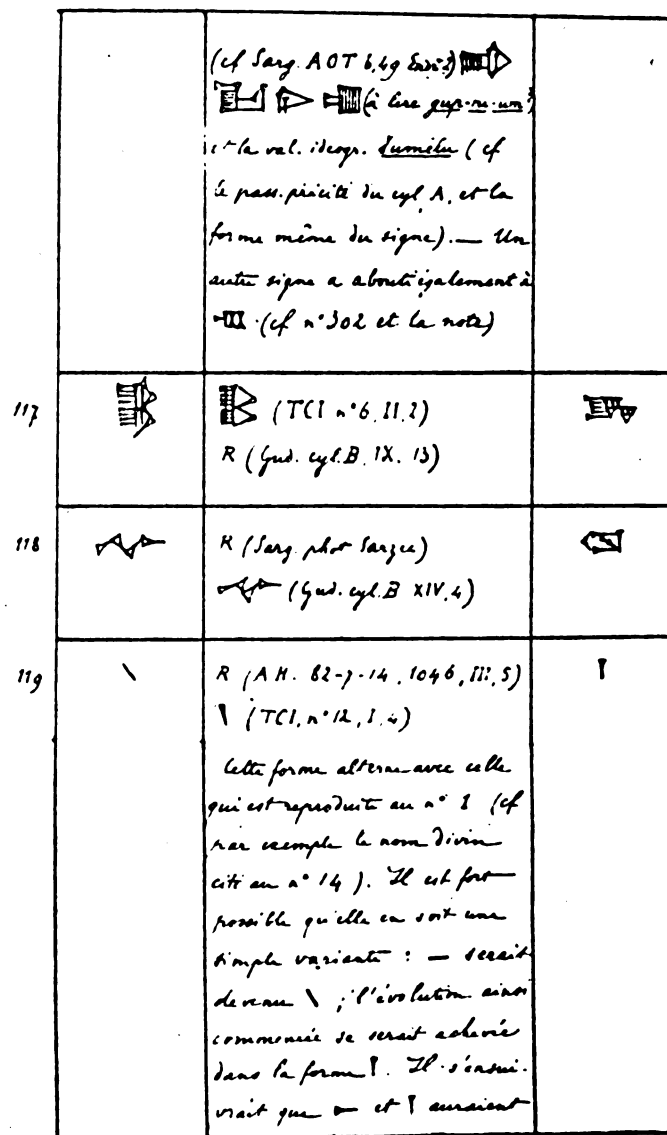 (cf Sarg. AOT b, 49
(à lire gup-ni-um?)
et la val. ideogr. šumêlu (cf
le pass. précité du cyl. A, et la
forme même du signe). — Un
autre signe a abouti également à
(cf n° 302 et la note)
117 (TCI n° 6, II, 2)
R (Gud. cyl. B, IX. 13)
118 R (Sarg. phot Sarzec)
(Gud. cyl. B XIV, 4)
119 R (A H. 82-7-14, 1046, III, 5)
(TCI, n° 12, I, 4)
Cette forme alterne avec celle
qui est reproduite au n° 1 (cf
par exemple le nom divin
cité au n° 14). Il est fort
possible qu'elle en soit une
simple variante : — serait
devenu \ ; l'évolution ainsi
commencée se serait achevée
dans la forme 𒁹. Il s'ensui-
vrait que 𒀸 et 𒁹 auraient